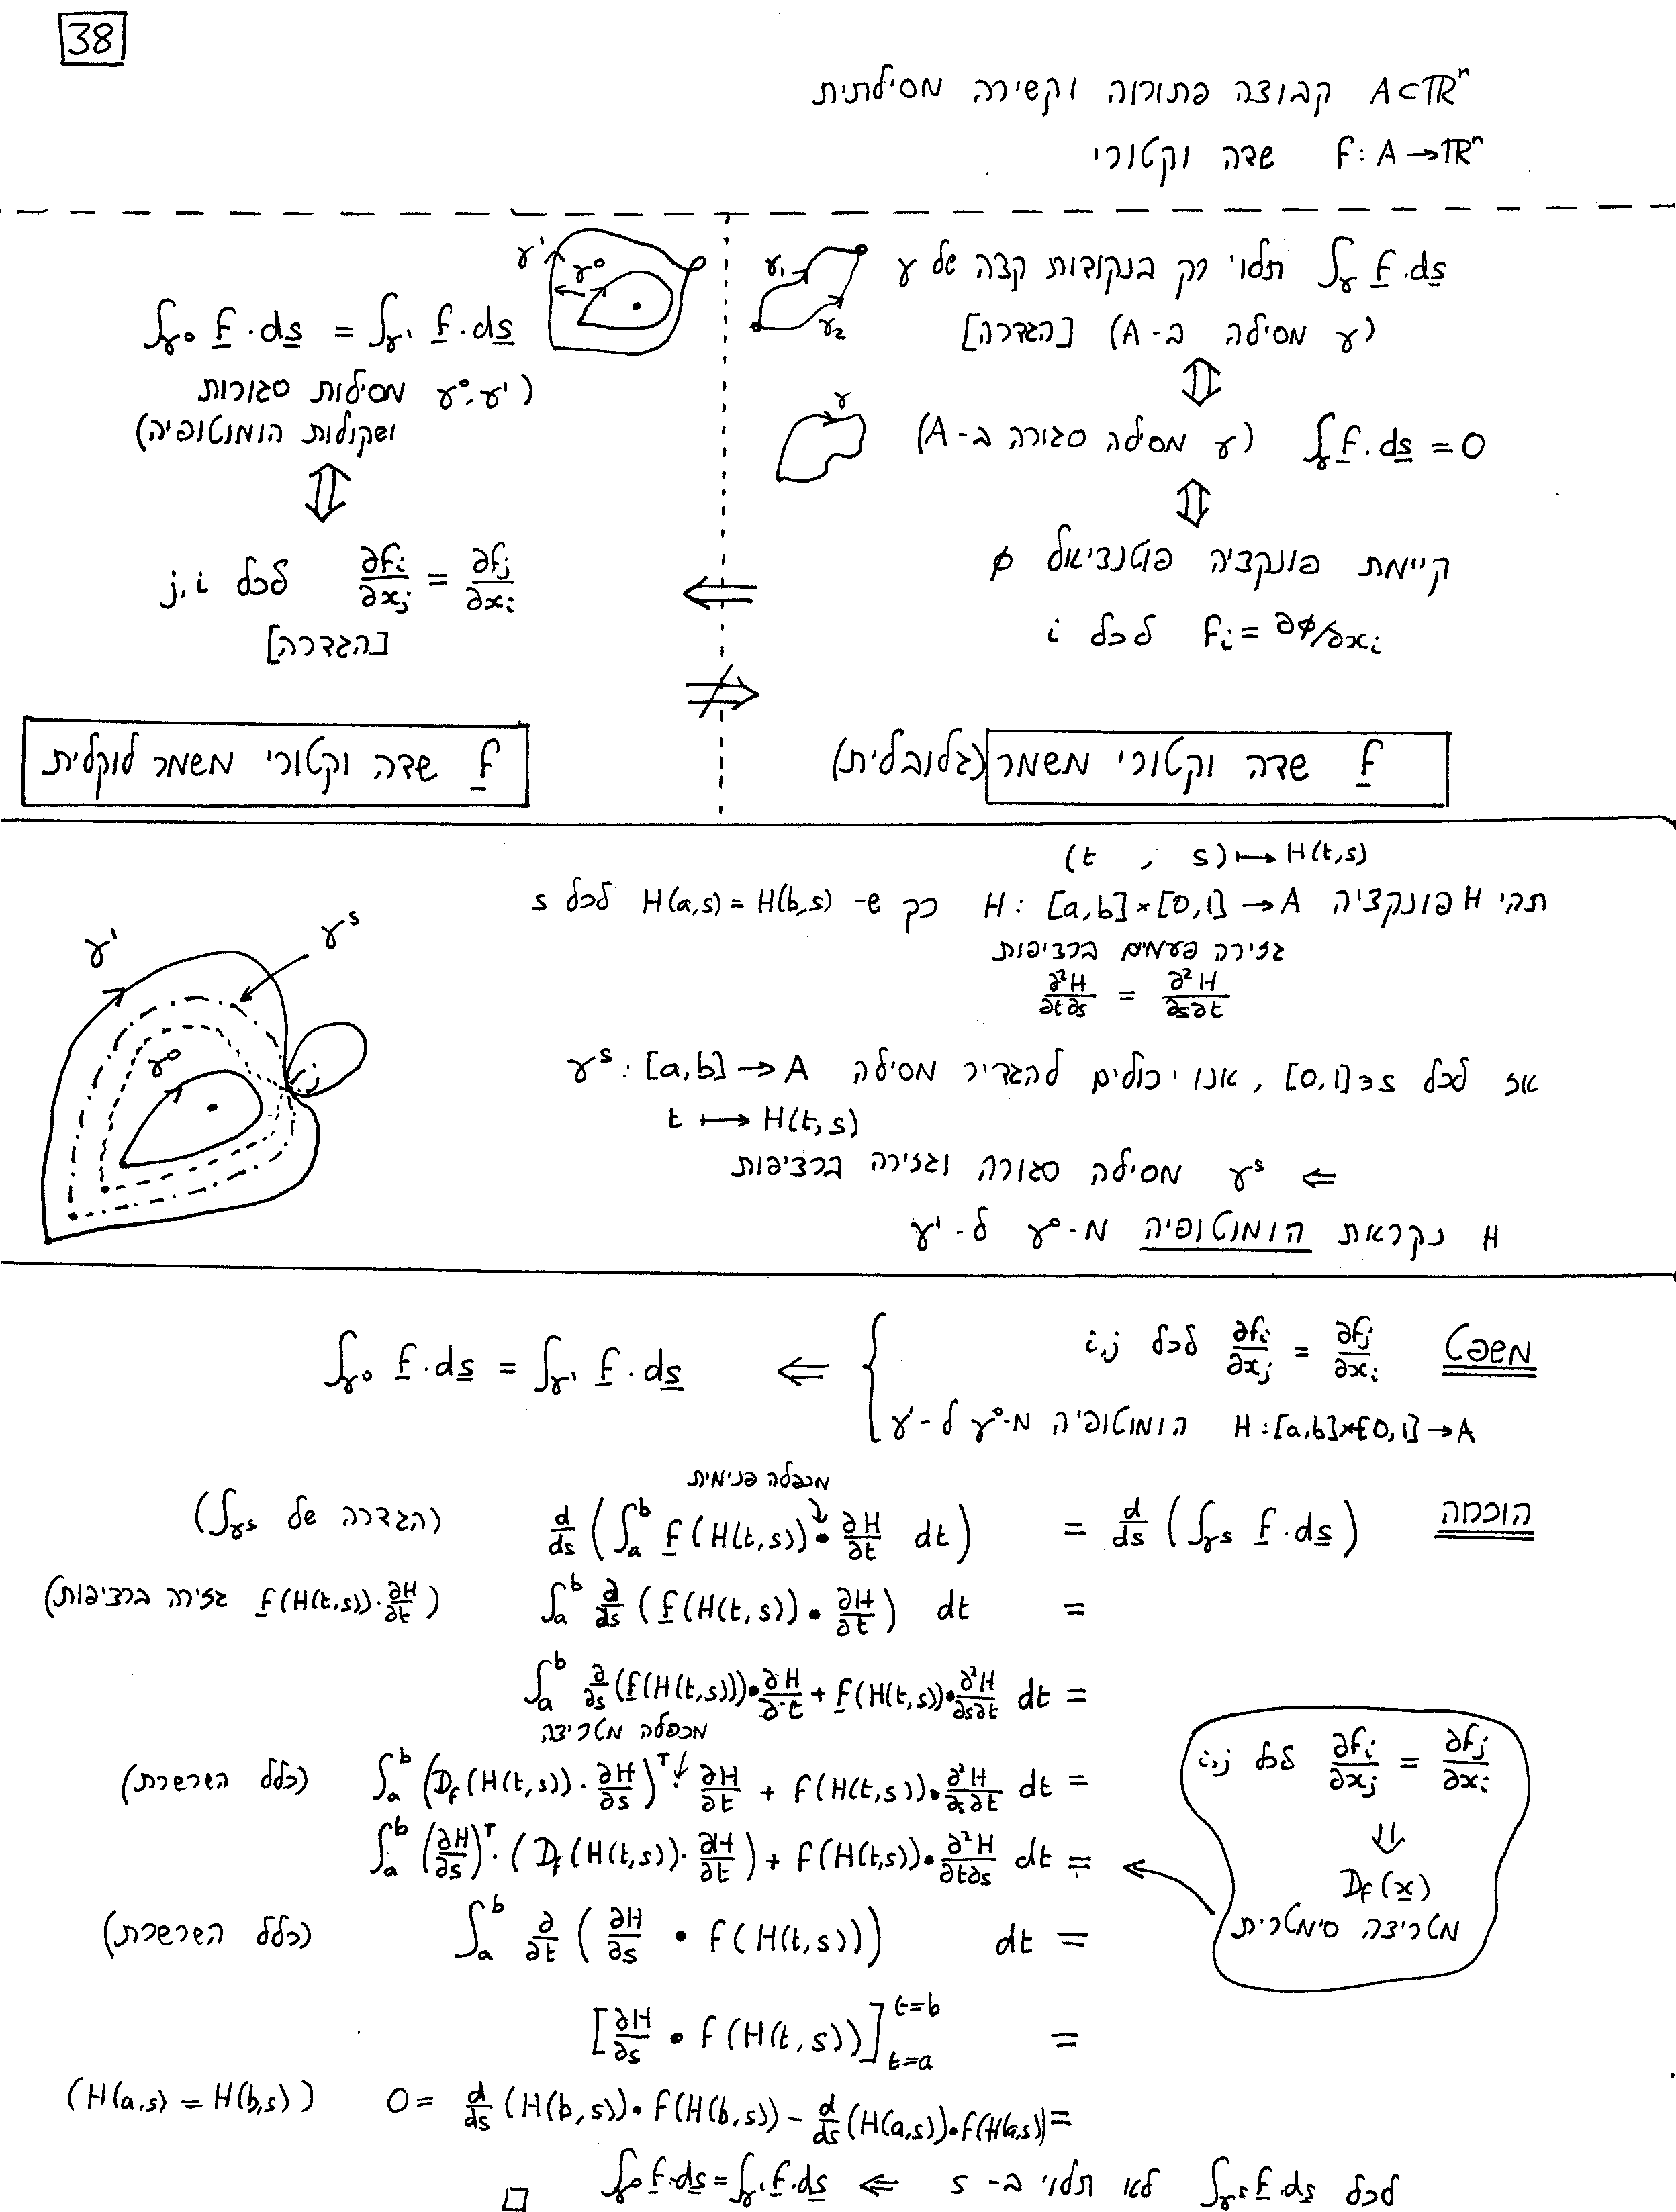 38
A⊂ℝⁿ קבוצה פתוחה וקשירה מסילתית
f: A→ℝⁿ שדה וקטורי
∫_γ f·ds תלוי רק בנקודות קצה של γ
(γ מסילה ב-A) [הגדרה]
γ₁ γ₂
⇕
∫_γ f·ds = 0 (γ מסילה סגורה ב-A)
γ
⇕
קיימת פונקציה פוטנציאל φ
f_i = ∂φ/∂x_i לכל i
f שדה וקטורי משמר (גלובלית)
⇐
⇏
γ¹ γ⁰
∫_γ⁰ f·ds = ∫_γ¹ f·ds
(γ⁰,γ¹ מסילות סגורות
ושקולות הומוטופיה)
⇕
∂f_i/∂x_j = ∂f_j/∂x_i לכל j,i
[הגדרה]
f שדה וקטורי משמר לוקלית
(t , s) ↦ H(t,s)
תהי H פונקציה H: [a,b]×[0,1] →A כך ש- H(a,s)=H(b,s) לכל s
גזירה פעמים ברציפות
∂²H/∂t∂s = ∂²H/∂s∂t
γ¹ γˢ γ⁰
אז לכל s∈[0,1], אנו יכולים להגדיר מסילה γˢ: [a,b] → A
t ↦ H(t,s)
⇐ γˢ מסילה סגורה וגזירה ברציפות
H נקראת הומוטופיה מ-γ⁰ ל-γ¹
משפט ∂f_i/∂x_j = ∂f_j/∂x_i לכל i,j
H:[a,b]×[0,1]→A הומוטופיה מ-γ⁰ ל-γ¹
⇐ ∫_γ⁰ f·ds = ∫_γ¹ f·ds
מכפלה פנימית
הוכחה d/ds (∫_γˢ f·ds) = d/ds (∫_a^b f(H(t,s))•∂H/∂t dt) (הגדרה של ∫_γˢ)
= ∫_a^b ∂/∂s (f(H(t,s))•∂H/∂t) dt (f(H(t,s))·∂H/∂t גזירה ברציפות)
= ∫_a^b ∂/∂s (f(H(t,s)))•∂H/∂t + f(H(t,s))•∂²H/∂s∂t dt
מכפלה מטריצה
= ∫_a^b (D_f(H(t,s))·∂H/∂s)ᵀ·∂H/∂t + f(H(t,s))•∂²H/∂s∂t dt (כלל השרשרת)
= ∫_a^b (∂H/∂s)ᵀ·(D_f(H(t,s))·∂H/∂t) + f(H(t,s))•∂²H/∂t∂s dt
∂f_i/∂x_j = ∂f_j/∂x_i לכל i,j
⇓
D_f(x)
מטריצה סימטרית
= ∫_a^b ∂/∂t (∂H/∂s • f(H(t,s))) dt (כלל השרשרת)
= [∂H/∂s • f(H(t,s))]_{t=a}^{t=b}
= d/ds (H(b,s))•f(H(b,s)) − d/ds (H(a,s))•f(H(a,s)) = 0 (H(a,s)=H(b,s))
לכל ∫_γˢ f·ds לא תלוי ב- s ⇐ ∫_γ⁰ f·ds = ∫_γ¹ f·ds
□